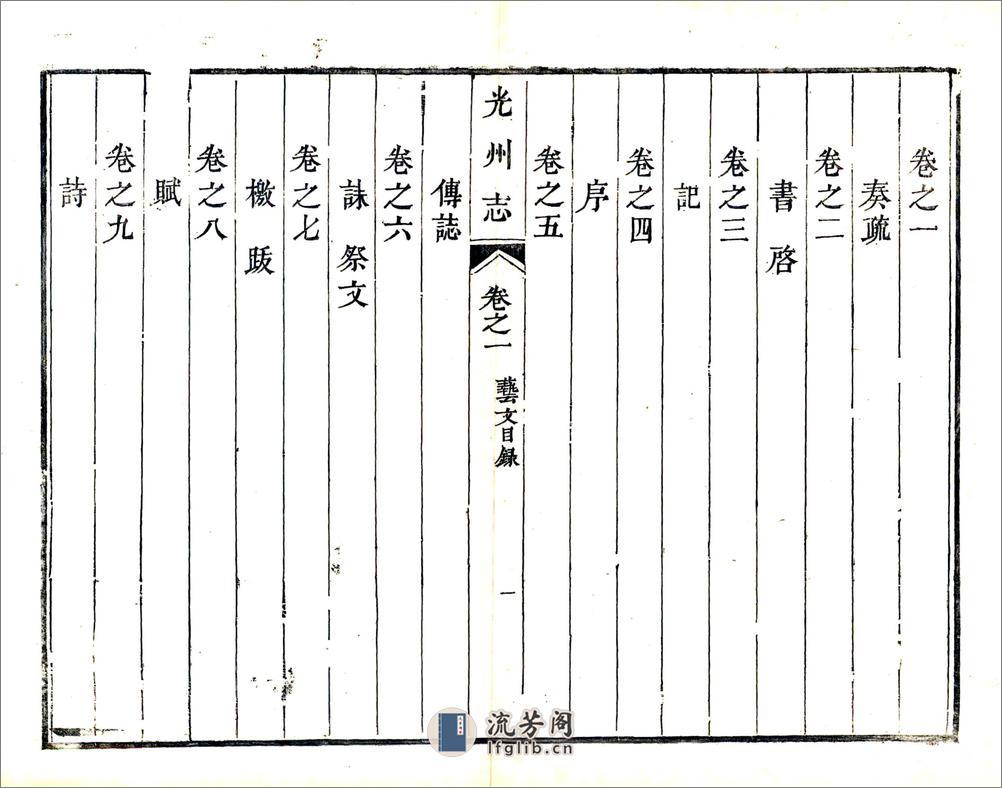 卷之一
奏疏
卷之二
書啓
卷之三
記
卷之四
序
卷之五
光州志 卷之一 藝文目錄 一
傳誌
卷之六
誄祭文
卷之七
檄跋
卷之八
賦
卷之九
詩
流芳阁
lfglib.cn